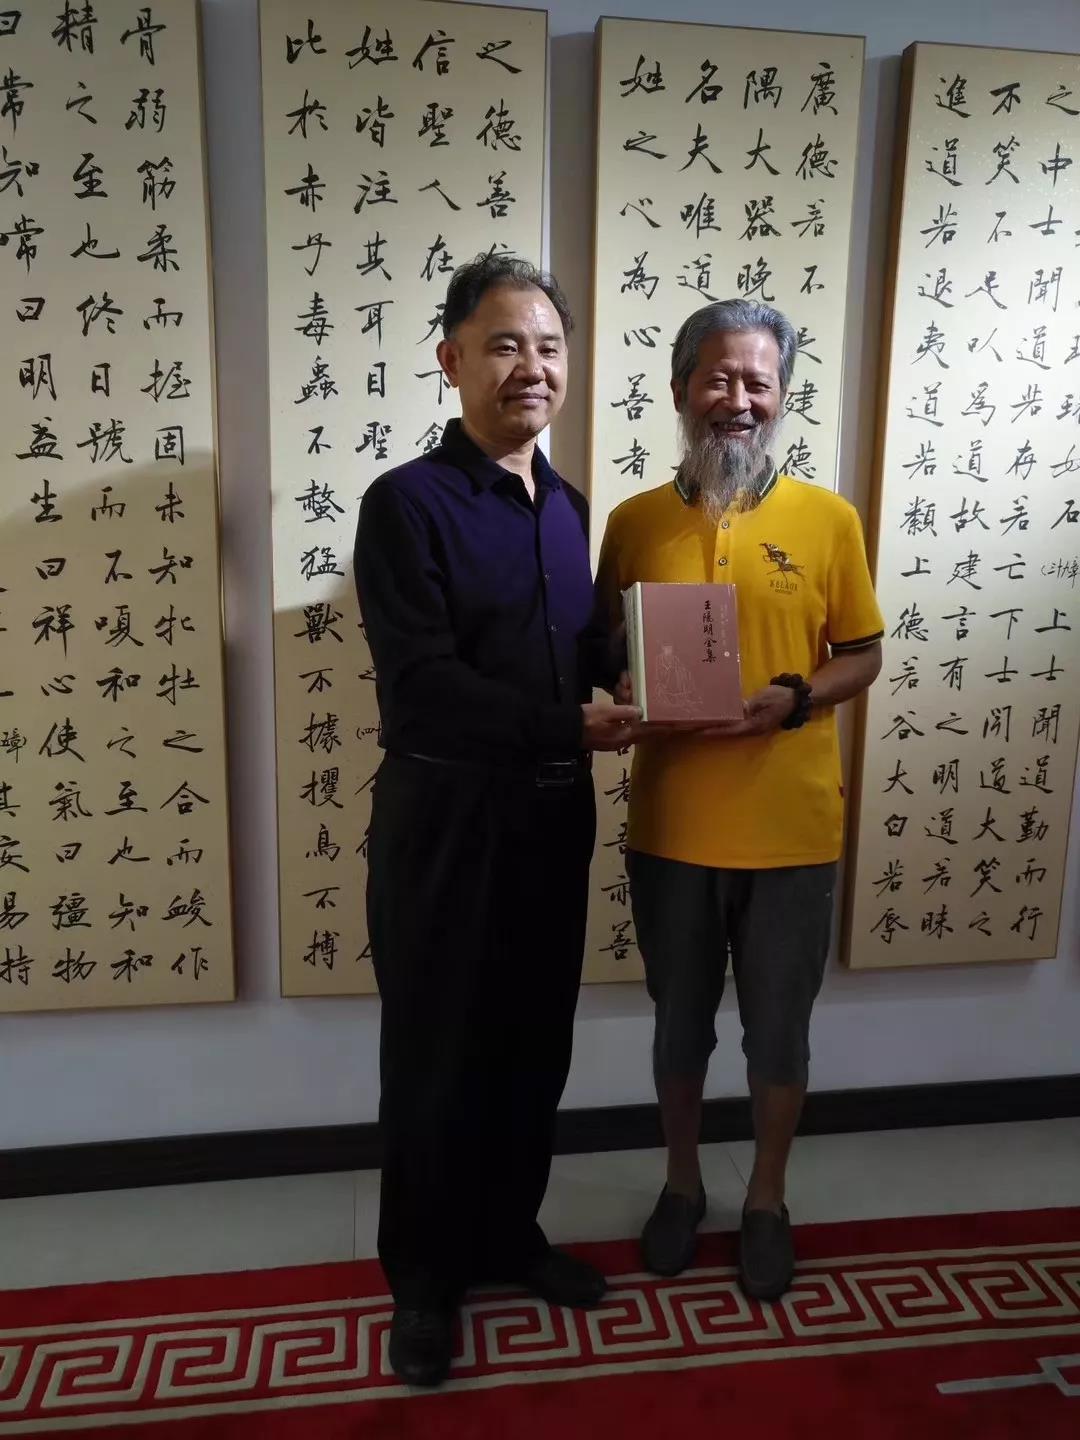 如石(三十九章)上士聞道勤而行
之中士聞道若存若亡下士聞道大笑之
不笑不足以為道故建言有之明道若昧
進道若退夷道若纇上德若谷大白若辱
廣德若不足建德
隅大器晚
名夫唯道
姓之心為心善者
者吾亦善
之德善信
信聖人在天下歙
姓皆注其耳目聖
比於赤子毒蟲不螫猛獸不據攫鳥不搏
骨弱筋柔而握固未知牝牡之合而䘒作
精之至也終日號而不嗄和之至也知和
曰常知常曰明益生曰祥心使氣曰彊物
章)其安易持
王陽明全集